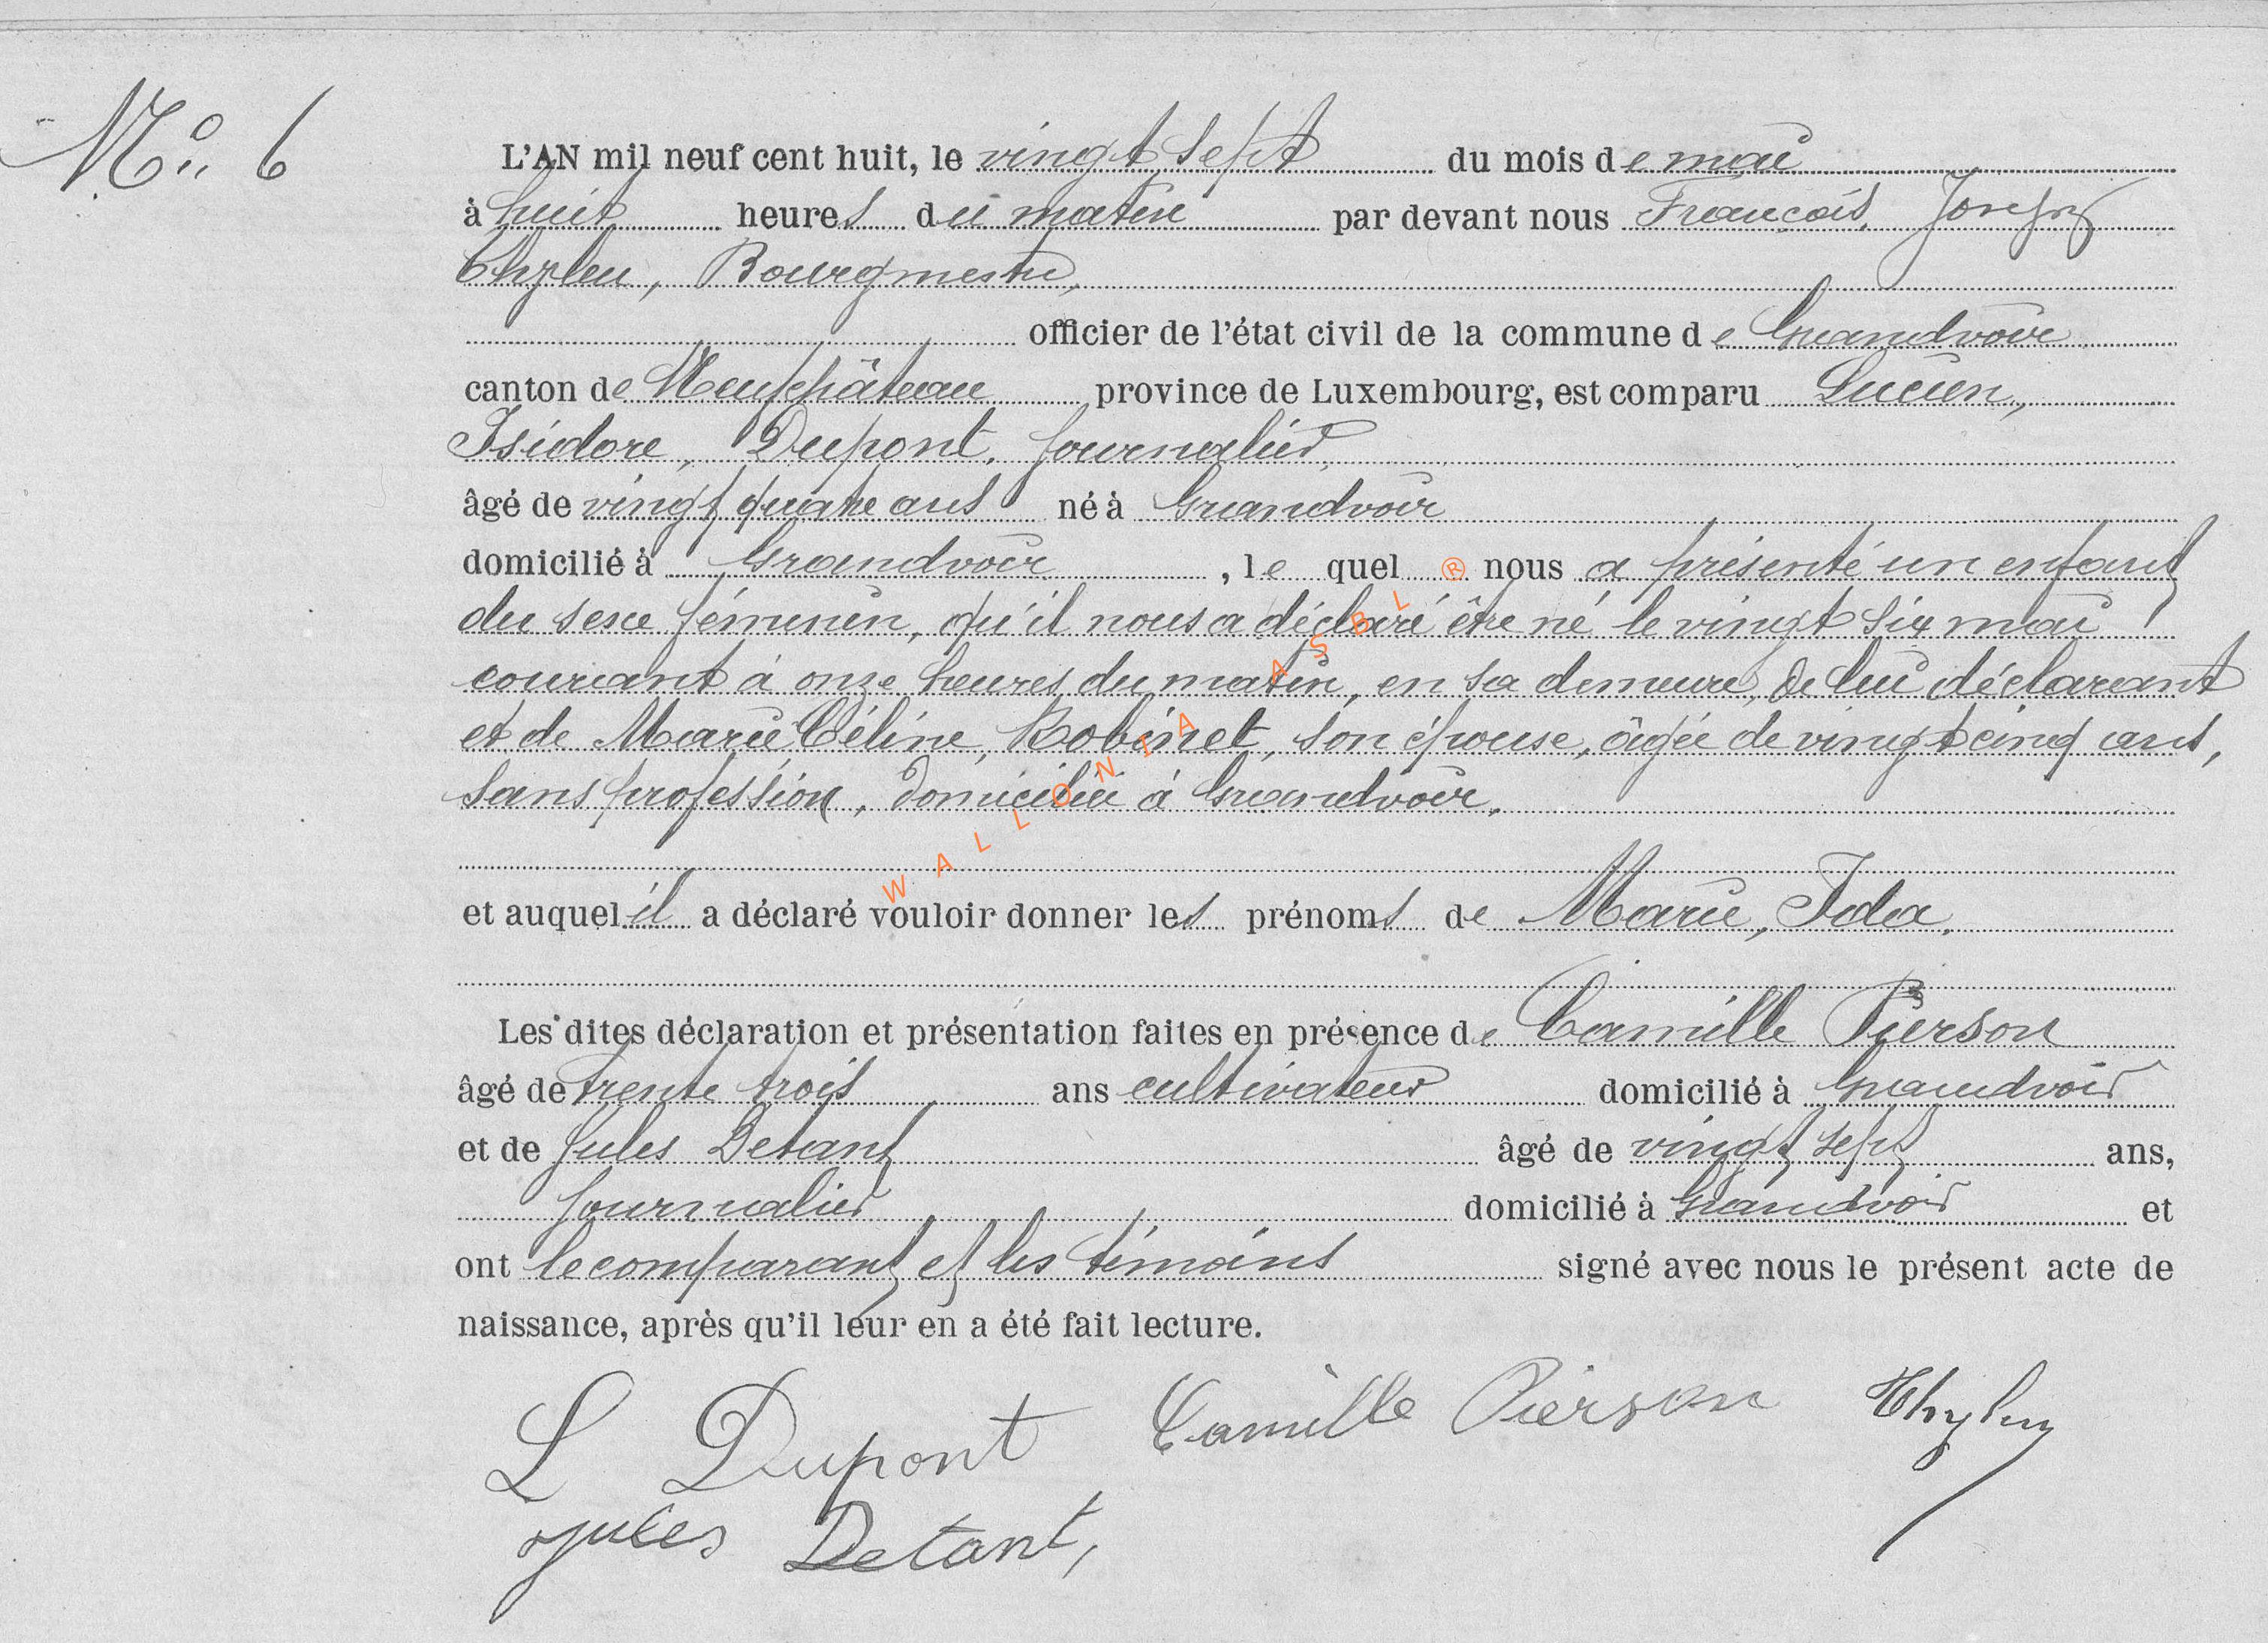 No 6
L'AN mil neuf cent huit, le vingt sept du mois de mai
à huit heures du matin par devant nous François, Joseph
Thylen, Bourgmestre,
officier de l'état civil de la commune de Grandvoir
canton de Neufchâteau province de Luxembourg, est comparu Lucien,
Isidore, Dupont, journalier,
âgé de vingt quatre ans né à Grandvoir
domicilié à Grandvoir, le quel nous a présenté un enfant
du sexe féminin, qu'il nous a déclaré être né le vingt six mai
courant à onze heures du matin, en sa demeure, de lui déclarant
et de Marie, Céline, Robinet, son épouse, âgée de vingt cinq ans,
sans profession, domiciliée à Grandvoir.
et auquel il a déclaré vouloir donner les prénoms de Marie, Ida.
Les dites déclaration et présentation faites en présence de Camille Pierson
âgé de trente trois ans cultivateur domicilié à Grandvoir
et de Jules Detant âgé de vingt sept ans,
journalier domicilié à Grandvoir et
ont le comparant et les témoins signé avec nous le présent acte de
naissance, après qu'il leur en a été fait lecture.
L Dupont Camille Pierson Thylen
Jules Detant,
WALLONIA ASBL ®